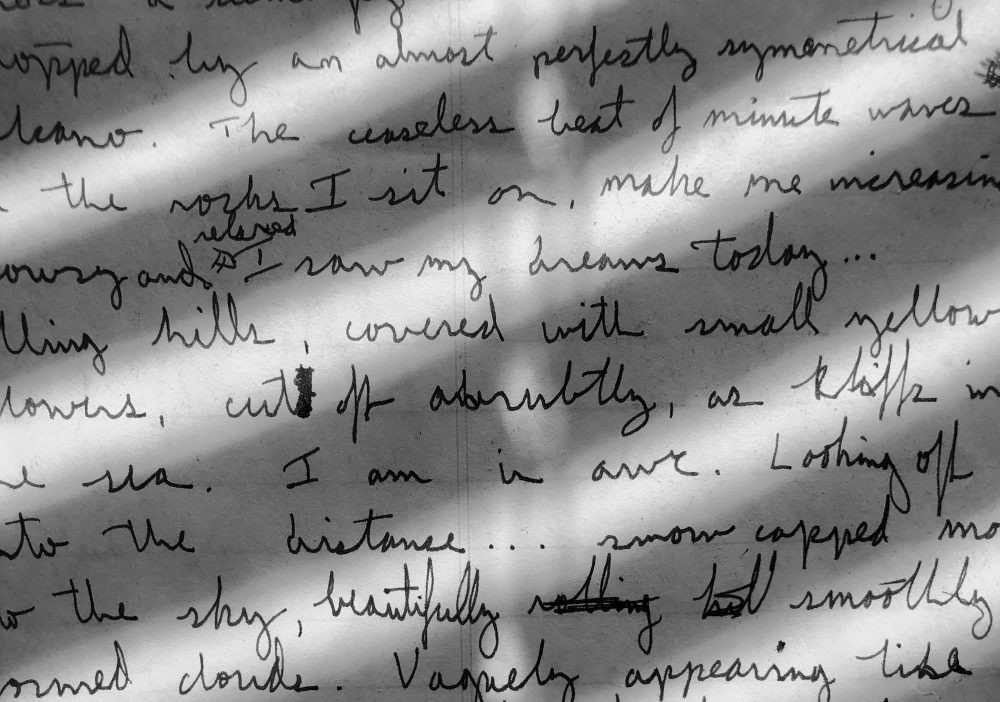 topped by an almost perfectly symmetrical
lcano. The ceaseless beat of minute waves
the rocks I sit on, make me increasin
relaxed
owsy and I saw my dreams today...
lling hills, covered with small yellow
lowers, cut off abruptly, as kliffs in
he sea. I am in awe. Looking off
nto the distance... snow capped mo
the sky, beautifully smoothly
ormed clouds. Vaguely appearing like